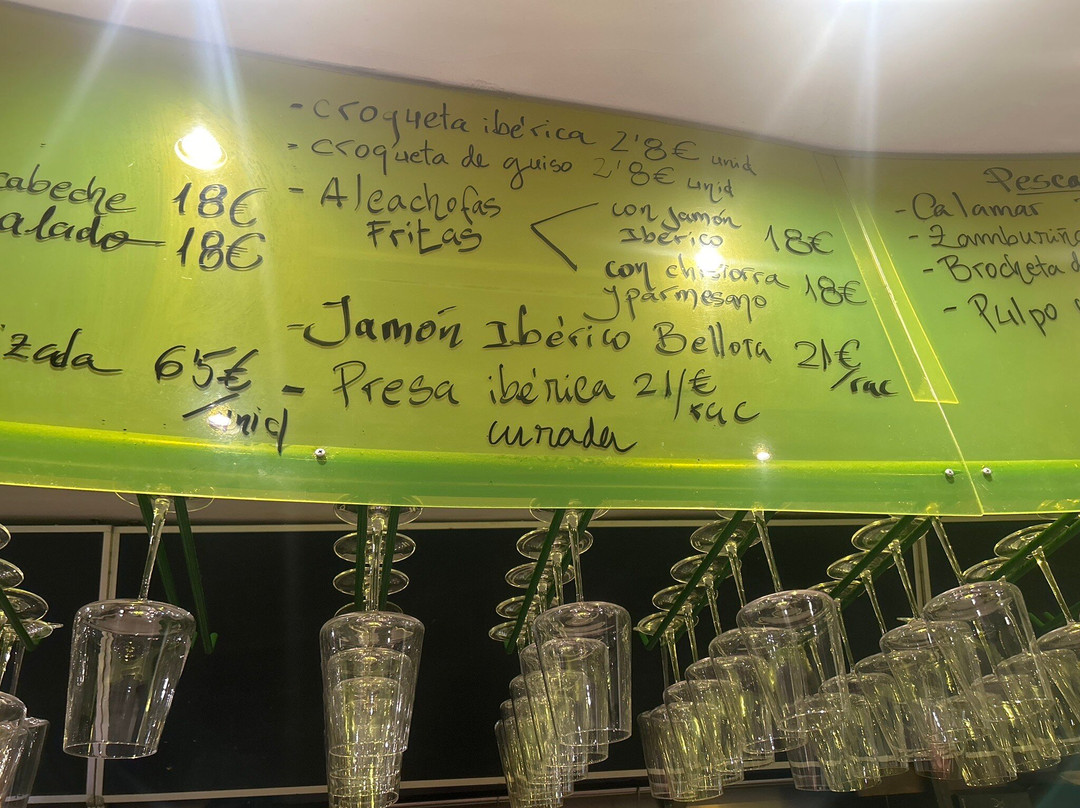 cabeche 18€
alado 18€
zada 6'5€
/unid
- croqueta ibérica 2'8€ unid
- croqueta de guiso 2'8€ unid
- Alcachofas
Fritas
con jamón
Ibérico 18€
con chistorra
y parmesano 18€
- Jamón Ibérico Bellota 21€
/rac
- Presa ibérica 21/€
rac
curada
Pesca
- Calamar
- Zamburiña
- Brocheta d
- Pulpo